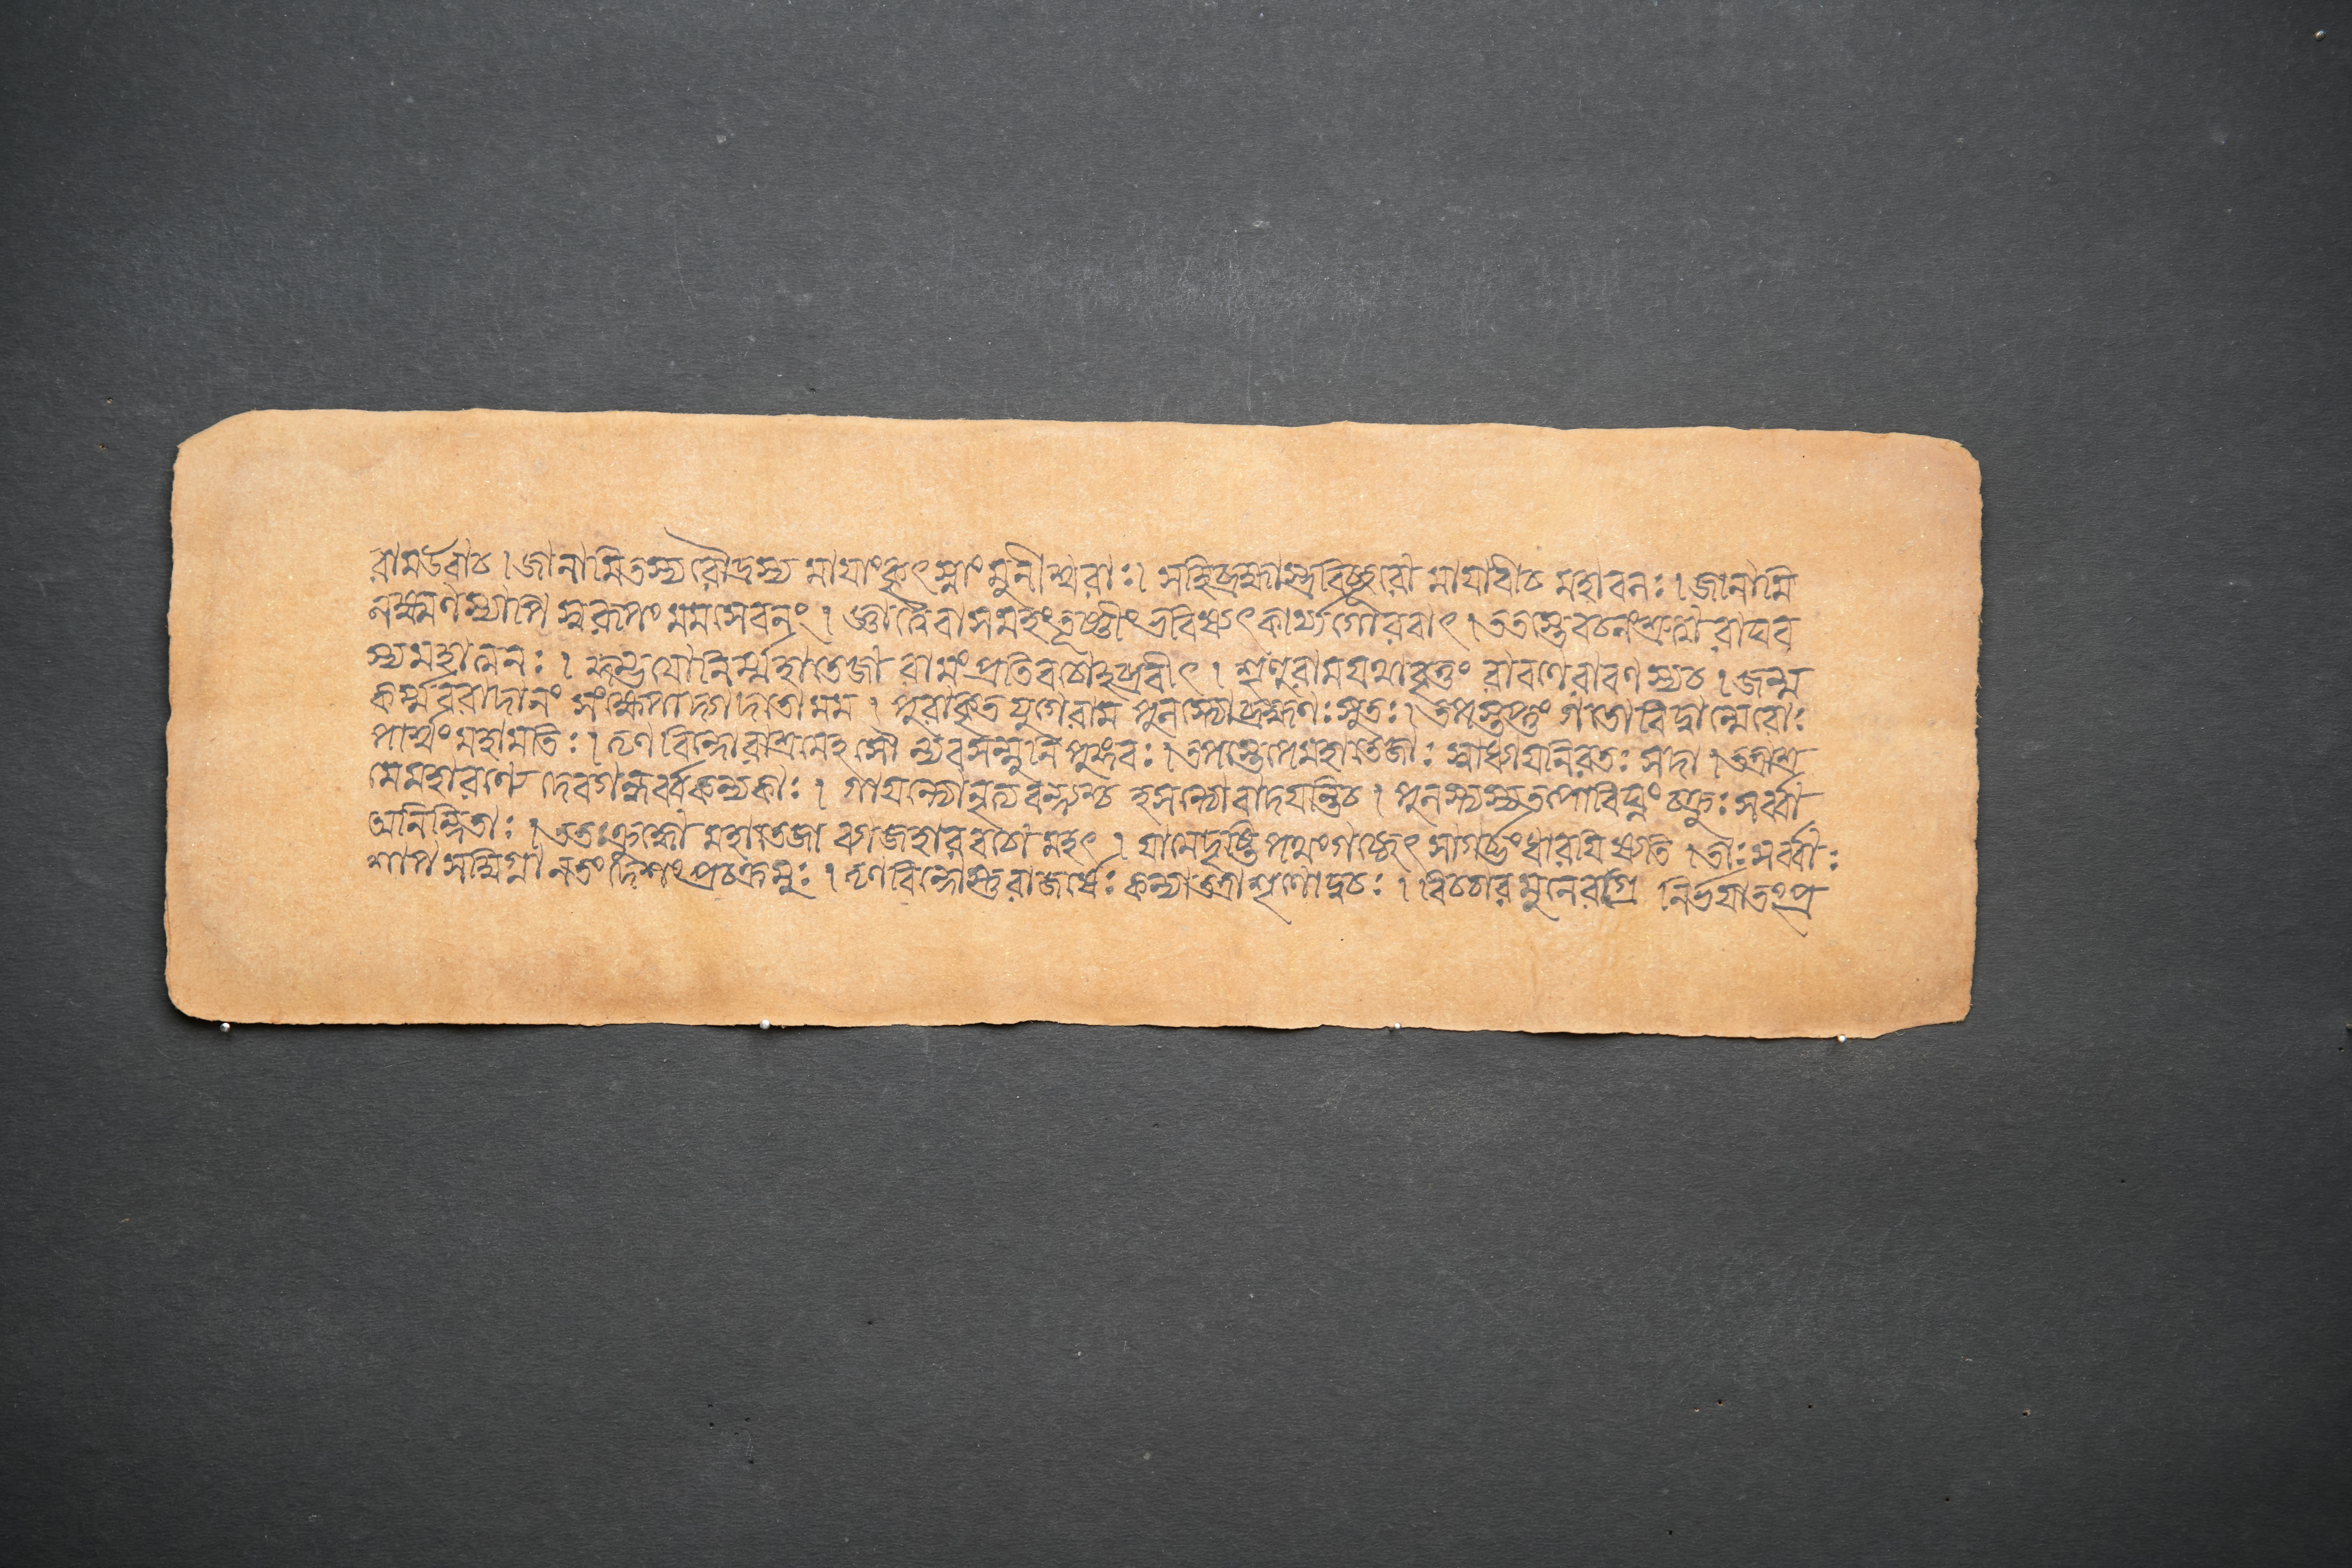 রামউবাচ ।জানামিতস্যরৌদ্রস্য মায়াংকৃৎস্নাং মুনীশ্বরাঃ। সহিব্রহ্মাস্ত্রবিচ্ছুরো মায়াবীচ মহাবলঃ।জানামি
লক্ষ্মণস্যাপি স্বরূপং মমসেবনং । জ্ঞাত্বৈবাসমহংতূষ্ণীংভবিষ্যৎকার্য্যগৌরবাৎ ।ততস্তেবচনংশ্রুত্বা রাঘব
স্যমহাত্মনঃ । কুম্ভযোনির্ম্মহাতেজা রামংপ্রতিবচোহব্রবীৎ । শৃণুরামযথাবৃত্তং রাবণেরাবণস্যচ ।জন্ম
কর্ম্মবরাদানং সংক্ষেপাদ্গদতো মম । পুরাকৃতযুগেরাম পুলস্ত্যোব্রহ্মণঃসুতঃ।তপস্তপ্তুং গতোবিদ্বান্মেরোঃ
পার্শ্বং মহামতিঃ।তৃণবিন্দোরাশ্রমেহসৌ ন্যবসন্মুনিপুঙ্গবঃ।তপস্তেপেমহাতেজাঃ স্বাধ্যায়নিরতঃ সদা ।তত্রাশ্র
মেমহারণ্যে দেবগন্ধর্ব্বকন্যকাঃ । গায়ন্ত্যোনৃত্যবন্ত্যশ্চ হসন্ত্যোবাদয়ন্তিচ । পুলস্ত্যস্যতপোবিঘ্নং চক্রুঃসর্ব্বা
অনিন্দিতাঃ ।ততঃক্রুদ্ধো মহাতেজা ব্যাজহারবচো মহৎ । যামেদৃষ্টিপথংগচ্ছেৎ সাগর্ভংধারয়িষ্যতি ।তাঃসর্ব্বাঃ
শাপসম্বিগ্না নতংদেশংপ্রচক্রমুঃ ।তৃণবিন্দোস্তুরাজর্ষেঃ কন্যাতন্নাশৃণোদ্বচঃ । বিচচারমুনেরগ্রে নির্ভয়াতংপ্র